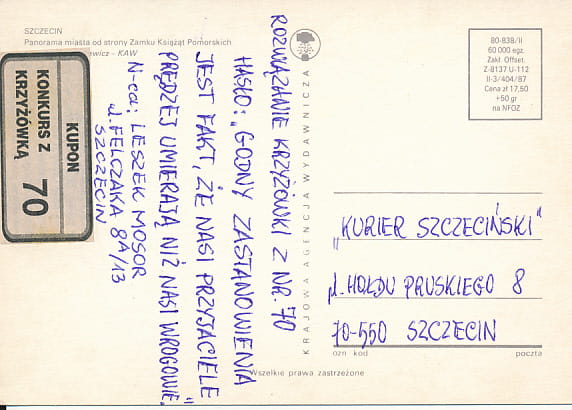 SZCZECIN
Panorama miasta od strony Zamku Książąt Pomorskich
– KAW
KUPON
KONKURS Z
KRZYŻÓWKĄ
70
ROZWIĄZANIE KRZYŻÓWKI Z NR. 70
HASŁO: „GODNY ZASTANOWIENIA
JEST FAKT, ŻE NASI PRZYJACIELE
PRĘDZEJ UMIERAJĄ NIŻ NASI WROGOWIE."
N-ca: LESZEK MOSOR
ul. FELCZAKA 8A/13
SZCZECIN
KRAJOWA AGENCJA WYDAWNICZA
80-838/II
60 000 egz.
Zakł. Offset.
Z-8137 U-112
II-3/404/87
Cena zł 17,50
+50 gr
na NFOZ
„KURIER SZCZECIŃSKI"
ul. HOŁDU PRUSKIEGO 8
70-550 SZCZECIN
ozn kod poczta
Wszelkie prawa zastrzeżone